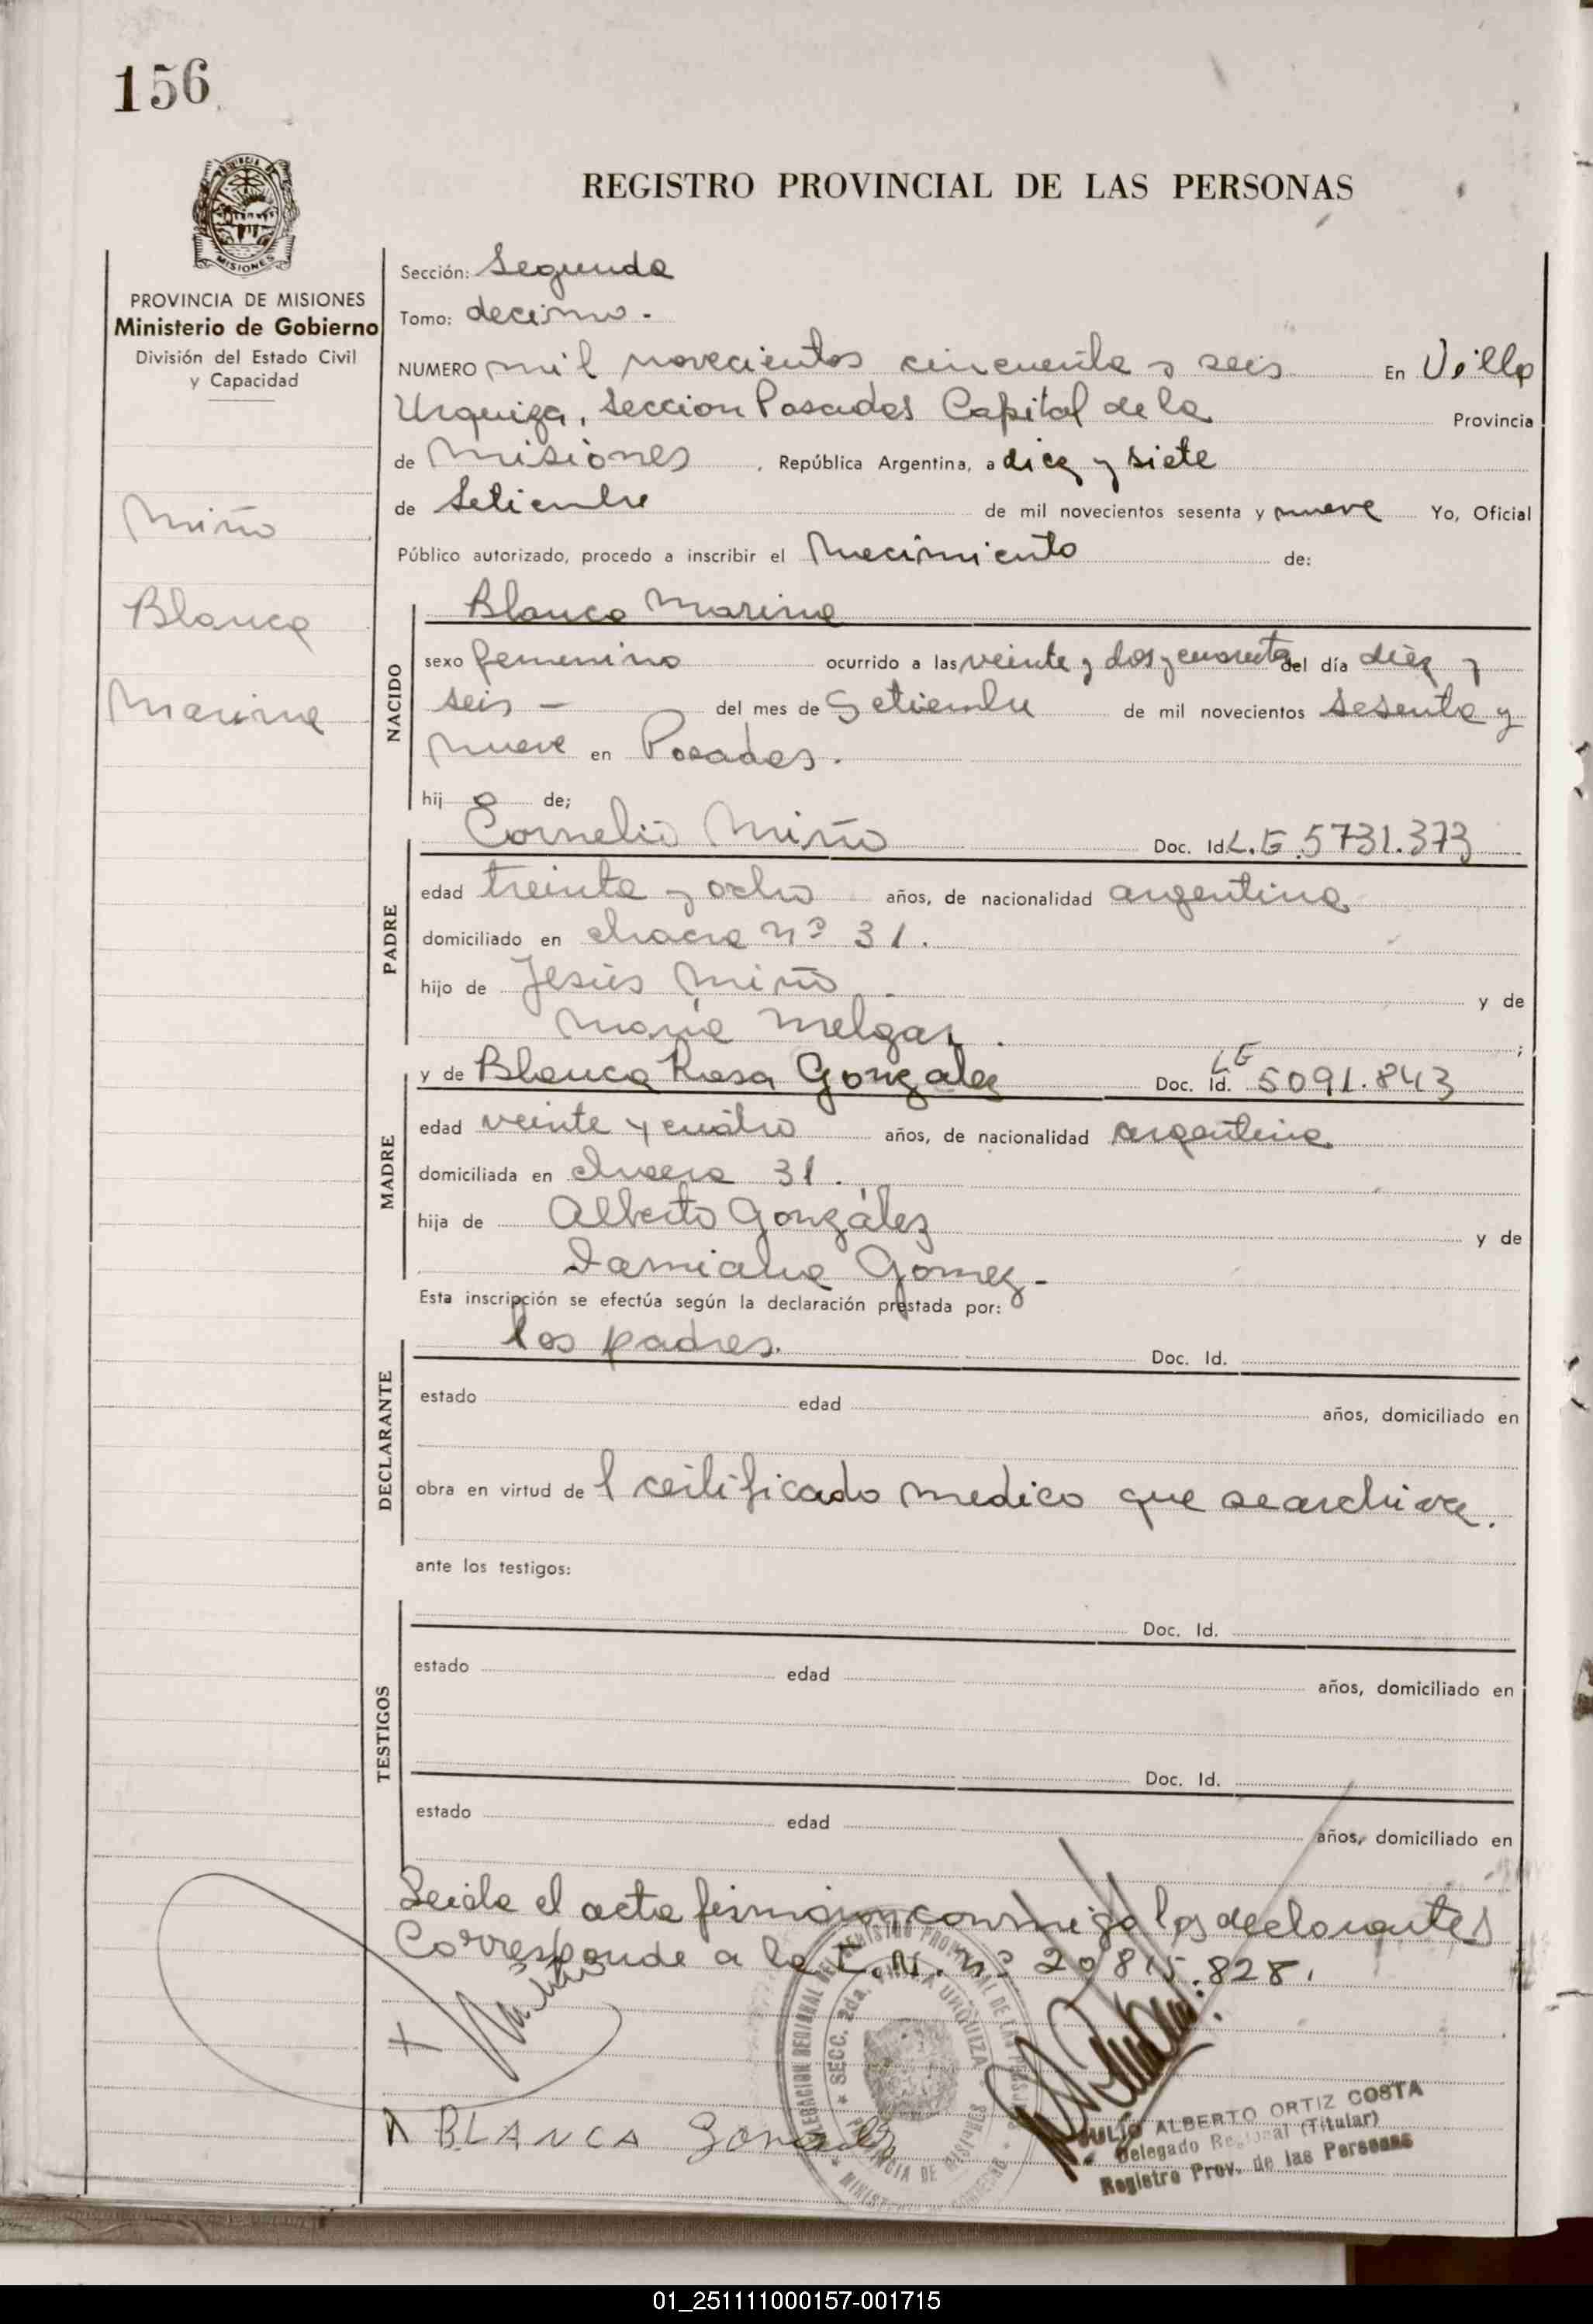 156
REGISTRO PROVINCIAL DE LAS PERSONAS
MISIONES
PROVINCIA DE MISIONES
Ministerio de Gobierno
División del Estado Civil
y Capacidad
Miño
Blanca
Marina
Sección: Segunda
Tomo: decimo.
NUMERO mil novecientos cincuenta y seis En Villa
Urquiza, Seccion Posadas Capital de la Provincia
de Misiones, República Argentina, a diez y siete
de Setiembre de mil novecientos sesenta y nueve Yo, Oficial
Público autorizado, procedo a inscribir el Nacimiento de:
NACIDO
Blanca Marina
sexo femenino ocurrido a las veinte y dos y cuarenta del día diez y
seis - del mes de Setiembre de mil novecientos sesenta y
nueve en Posadas.
hij a de;
PADRE
Cornelio Miño Doc. Id. L.E. 5731.373
edad treinta y ocho años, de nacionalidad argentina
domiciliado en chacra nº 31.
hijo de Jesús Miño y de
María Melgar.
MADRE
y de Blanca Rosa Gonzalez Doc. Id. LE 5091.843
edad veinte y cuatro años, de nacionalidad argentina
domiciliada en chacra 31.
hija de Alberto González y de
Damiana Gomez-
Esta inscripción se efectúa según la declaración prestada por:
DECLARANTE
los padres. Doc. Id.
estado edad años, domiciliado en
obra en virtud de l certificado medico que se archiva.
ante los testigos:
TESTIGOS
Doc. Id.
estado edad años, domiciliado en
Doc. Id.
estado edad años, domiciliado en
Leida el acta firman conmigo los declarantes
Corresponde a la C.N. nº 20.815.828.
x Miño
BLANCA Gonzalez
SECC. 2da. VILLA URQUIZA
PROVINCIA DE MISIONES
JULIO ALBERTO ORTIZ COSTA
Delegado Regional (Titular)
Registro Prov. de las Personas
01_251111000157-001715